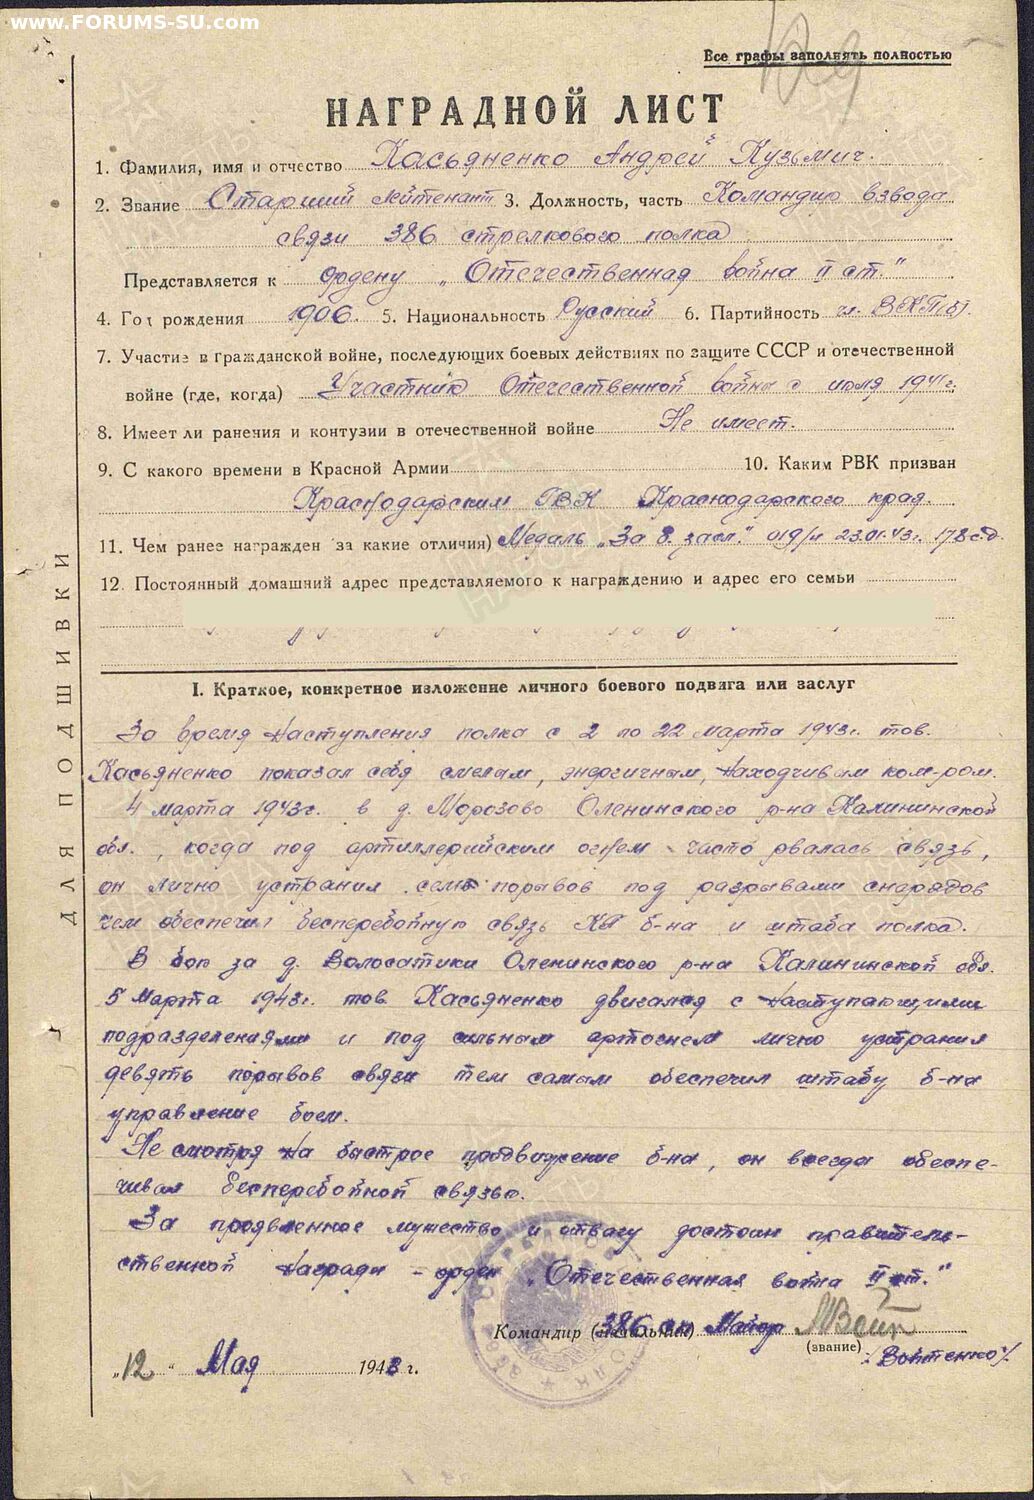 www.FORUMS-SU.com
Все графы заполнять полностью
НАГРАДНОЙ ЛИСТ
1. Фамилия, имя и отчество Касьяненко Андрей Кузьмич.
2. Звание Старший лейтенант 3. Должность, часть Командир взвода
связи 386 стрелкового полка
Представляется к ордену „Отечественная война II ст."
4. Год рождения 1906. 5. Национальность Русский 6. Партийность чл. ВКП(б).
7. Участие в гражданской войне, последующих боевых действиях по защите СССР и отечественной
войне (где, когда) Участник Отечественной войны с июля 1941г.
8. Имеет ли ранения и контузии в отечественной войне Не имеет.
9. С какого времени в Красной Армии 10. Каким РВК призван
Краснодарским ГВК Краснодарского края.
11. Чем ранее награжден за какие отличия) Медаль „За б. засл." 23.01.43г. 178 сд.
12. Постоянный домашний адрес представляемого к награждению и адрес его семьи
I. Краткое, конкретное изложение личного боевого подвига или заслуг
За время наступления полка с 2 по 22 марта 1943г. тов.
Касьяненко показал себя смелым, энергичным, находчивым ком-ром.
4 марта 1943г. в д. Морозово Оленинского р-на Калининской
обл., когда под артиллерийским огнем часто рвалась связь,
он лично устранил семь порывов под разрывами снарядов
чем обеспечил бесперебойную связь КП б-на и штаба полка.
В бою за д. Волосатики Оленинского р-на Калининской обл.
5 марта 1943г. тов. Касьяненко двигался с наступающими
подразделениями и под сильным артогнем лично устранил
девять порывов связи тем самым обеспечил штабу б-на
управление боем.
Не смотря на быстрое продвижение б-на, он всегда обеспе-
чивал бесперебойной связью.
За проявленное мужество и отвагу достоин правитель-
ственной награды - орден „Отечественная война II ст."
Командир (начальник) 386 сп Майор
(звание)
/Войтенко/
„12" Мая 1943 г.
ДЛЯ ПОДШИВКИ